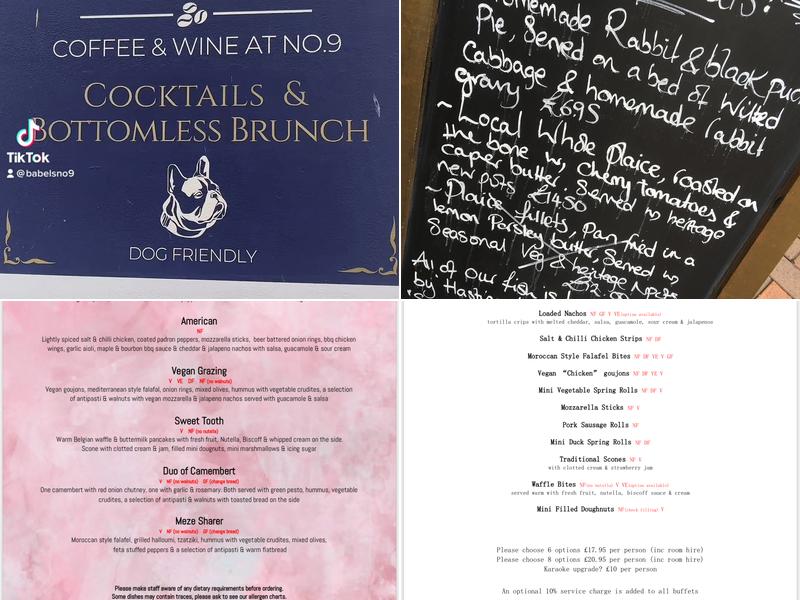 COFFEE & WINE AT NO.9
COCKTAILS &
BOTTOMLESS BRUNCH
TikTok
@babelsno9
DOG FRIENDLY
Homemade Rabbit & black
Pie, Served on a bed of Wilted
Cabbage & homemade rabbit
gravy £6.95
~ Local Whole Plaice, roasted on
the bone w, cherry tomatoes &
caper butter. Served w heritage
new pots £14.50
~ Plaice fillets, Pan fried in a
lemon Parsley butter, Served w,
Seasonal Veg & heritage
All of our fish is
by
American
NF
Lightly spiced salt & chilli chicken, coated padron peppers, mozzarella sticks, beer battered onion rings, bbq chicken
wings, garlic aioli, maple & bourbon bbq sauce & cheddar & jalapeno nachos with salsa, guacamole & sour cream
Vegan Grazing
V VE DF NF (no walnuts)
Vegan goujons, mediterranean style falafal, onion rings, mixed olives, hummus with vegetable crudites, a selection
of antipasti & walnuts with vegan mozzarella & jalapeno nachos served with guacamole & salsa
Sweet Tooth
V NF (no nutella)
Warm Belgian waffle & buttermilk pancakes with fresh fruit, Nutella, Biscoff & whipped cream on the side.
Scone with clotted cream & jam, filled mini dougnuts, mini marshmallows & icing sugar
Duo of Camembert
V NF (no walnuts) GF (change bread)
One camembert with red onion chutney, one with garlic & rosemary. Both served with green pesto, hummus, vegetable
crudites, a selection of antipasti & walnuts with toasted bread on the side
Meze Sharer
V NF (no walnuts) GF (change bread)
Moroccan style falafel, grilled halloumi, tzatziki, hummus with vegetable crudites, mixed olives,
feta stuffed peppers & a selection of antipasti & warm flatbread
Please make staff aware of any dietary requirements before ordering.
Some dishes may contain traces, please ask to see our allergen charts.
Loaded Nachos NF GF V VE(option available)
tortilla crips with melted cheddar, salsa, guacamole, sour cream & jalapenos
Salt & Chilli Chicken Strips NF DF
Moroccan Style Falafel Bites NF DF VE V GF
Vegan “Chicken” goujons NF DF VE V
Mini Vegetable Spring Rolls NF DF V
Mozzarella Sticks NF V
Pork Sausage Rolls NF
Mini Duck Spring Rolls NF DF
Traditional Scones NF V
with clotted cream & strawberry jam
Waffle Bites NF(no nutella) V VE(option available)
served warm with fresh fruit, nutella, biscoff sauce & cream
Mini Filled Doughnuts NF(check filling) V
Please choose 6 options £17.95 per person (inc room hire)
Please choose 8 options £20.95 per person (inc room hire)
Karaoke upgrade? £10 per person
An optional 10% service charge is added to all buffets